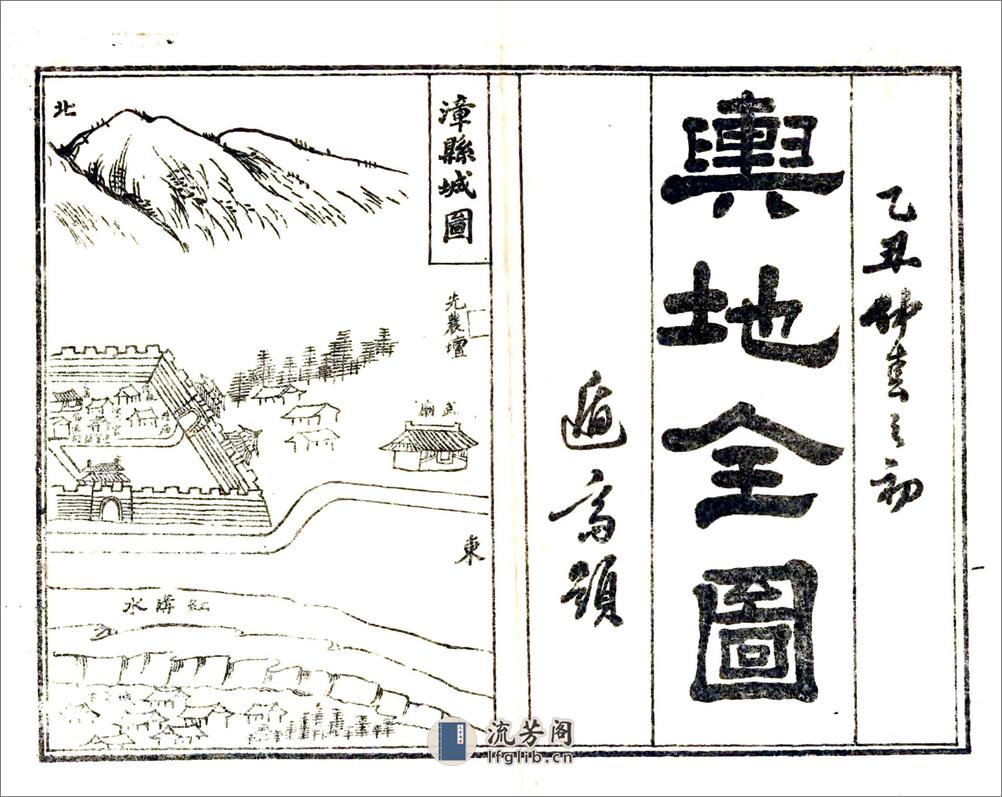 乙丑仲春之初
輿地全圖
遁高題
漳縣城圖
北
先農壇
武廟
東
紅溝水
流芳阁
lfglib.cn